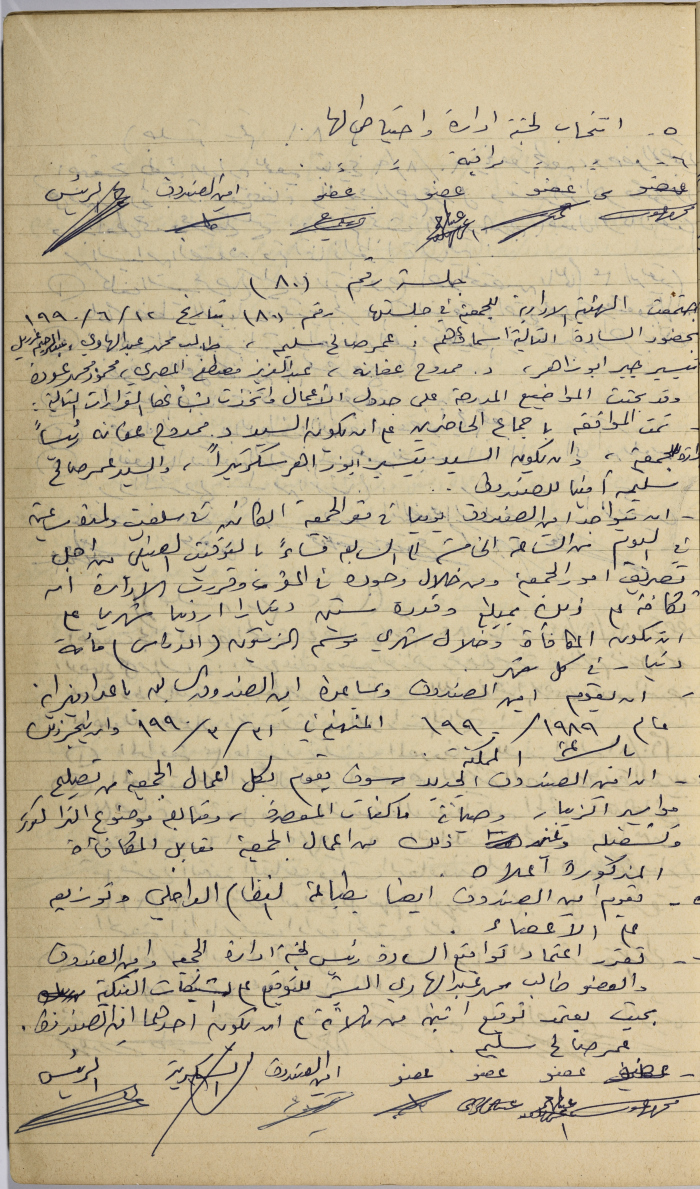 ٥- انتخاب لجنة ادارة واحتياطي لها.
٦- " " مراقبة " "
عضو عضو عضو عضو امين الصندوق الرئيس
جلسة رقم (٨٠)
اجتمعت الهيئة الادارية للجمعية في جلستها رقم (٨٠) بتاريخ ١٢/٦/١٩٩٠
بحضور السادة التالية اسماؤهم: عمر صالح سليم، طالب محمد عبد الهادي، عبد الرحيم
تيسير جبر ابو زاهر، د. ممدوح عفانه، عبد العزيز مصطفى المصري، محمود محمد عودة
وقد بحثت المواضيع المدرجة على جدول الأعمال واتخذت بشأنها القرارات التالية:
- تمت الموافقة باجماع الحاضرين على ان يكون السيد د. ممدوح عفانه رئيساً
لادارة الجمعية، وان يكون السيد تيسير ابو زاهر سكرتيراً، والسيد عمر صالح
سليم أميناً للصندوق.
- ان يتواجد امين الصندوق يوميا في مقر الجمعية الكائن في سلفيت ولمدة ساعتين
في اليوم من الساعة الخامسة الى السابعة مساءً بالتوقيت الصيفي من اجل
تصريف امور الجمعية ومن خلال وجوده في المقر، وقررت الادارة ان
تكافئه على ذلك بمبلغ وقدره ستين ديناراً اردنيا شهريا على
ان تكون المكافأة وخلال شهري موسم الزيتون (الدراس) مائة
دينار في كل شهر.
- ان يقوم امين الصندوق وبمساعدة امين الصندوق السابق باعداد ميزانية
عام ١٩٨٩/١٩٩٠ المنتهية في ٣١/٣/١٩٩٠ وان ينجز ذلك
بالسرعة الممكنة.
- ان امين الصندوق الجديد سوف يقوم بكل اعمال الجمعية من تصليح
مواسير الزيبار وصيانة ماكنات المعصرة، ومتابعة موضوع التراكتور
وتشغيله وغير ذلك من اعمال الجمعية مقابل المكافأة
المذكورة اعلاه.
- يقوم امين الصندوق ايضا بطباعة النظام الداخلي وتوزيعه
على الأعضاء.
- تقرر اعتماد تواقيع السادة رئيس لجنة ادارة الجمعية وامين الصندوق
والعضو طالب محمد عبد الهادي للتوقيع على الشيكات البنكية
بحيث يعتمد توقيع اثنين من ثلاثة على ان يكون احدهما امين الصندوق
عمر صالح سليم.
عضو عضو عضو عضو امين الصندوق السكرتير الرئيس